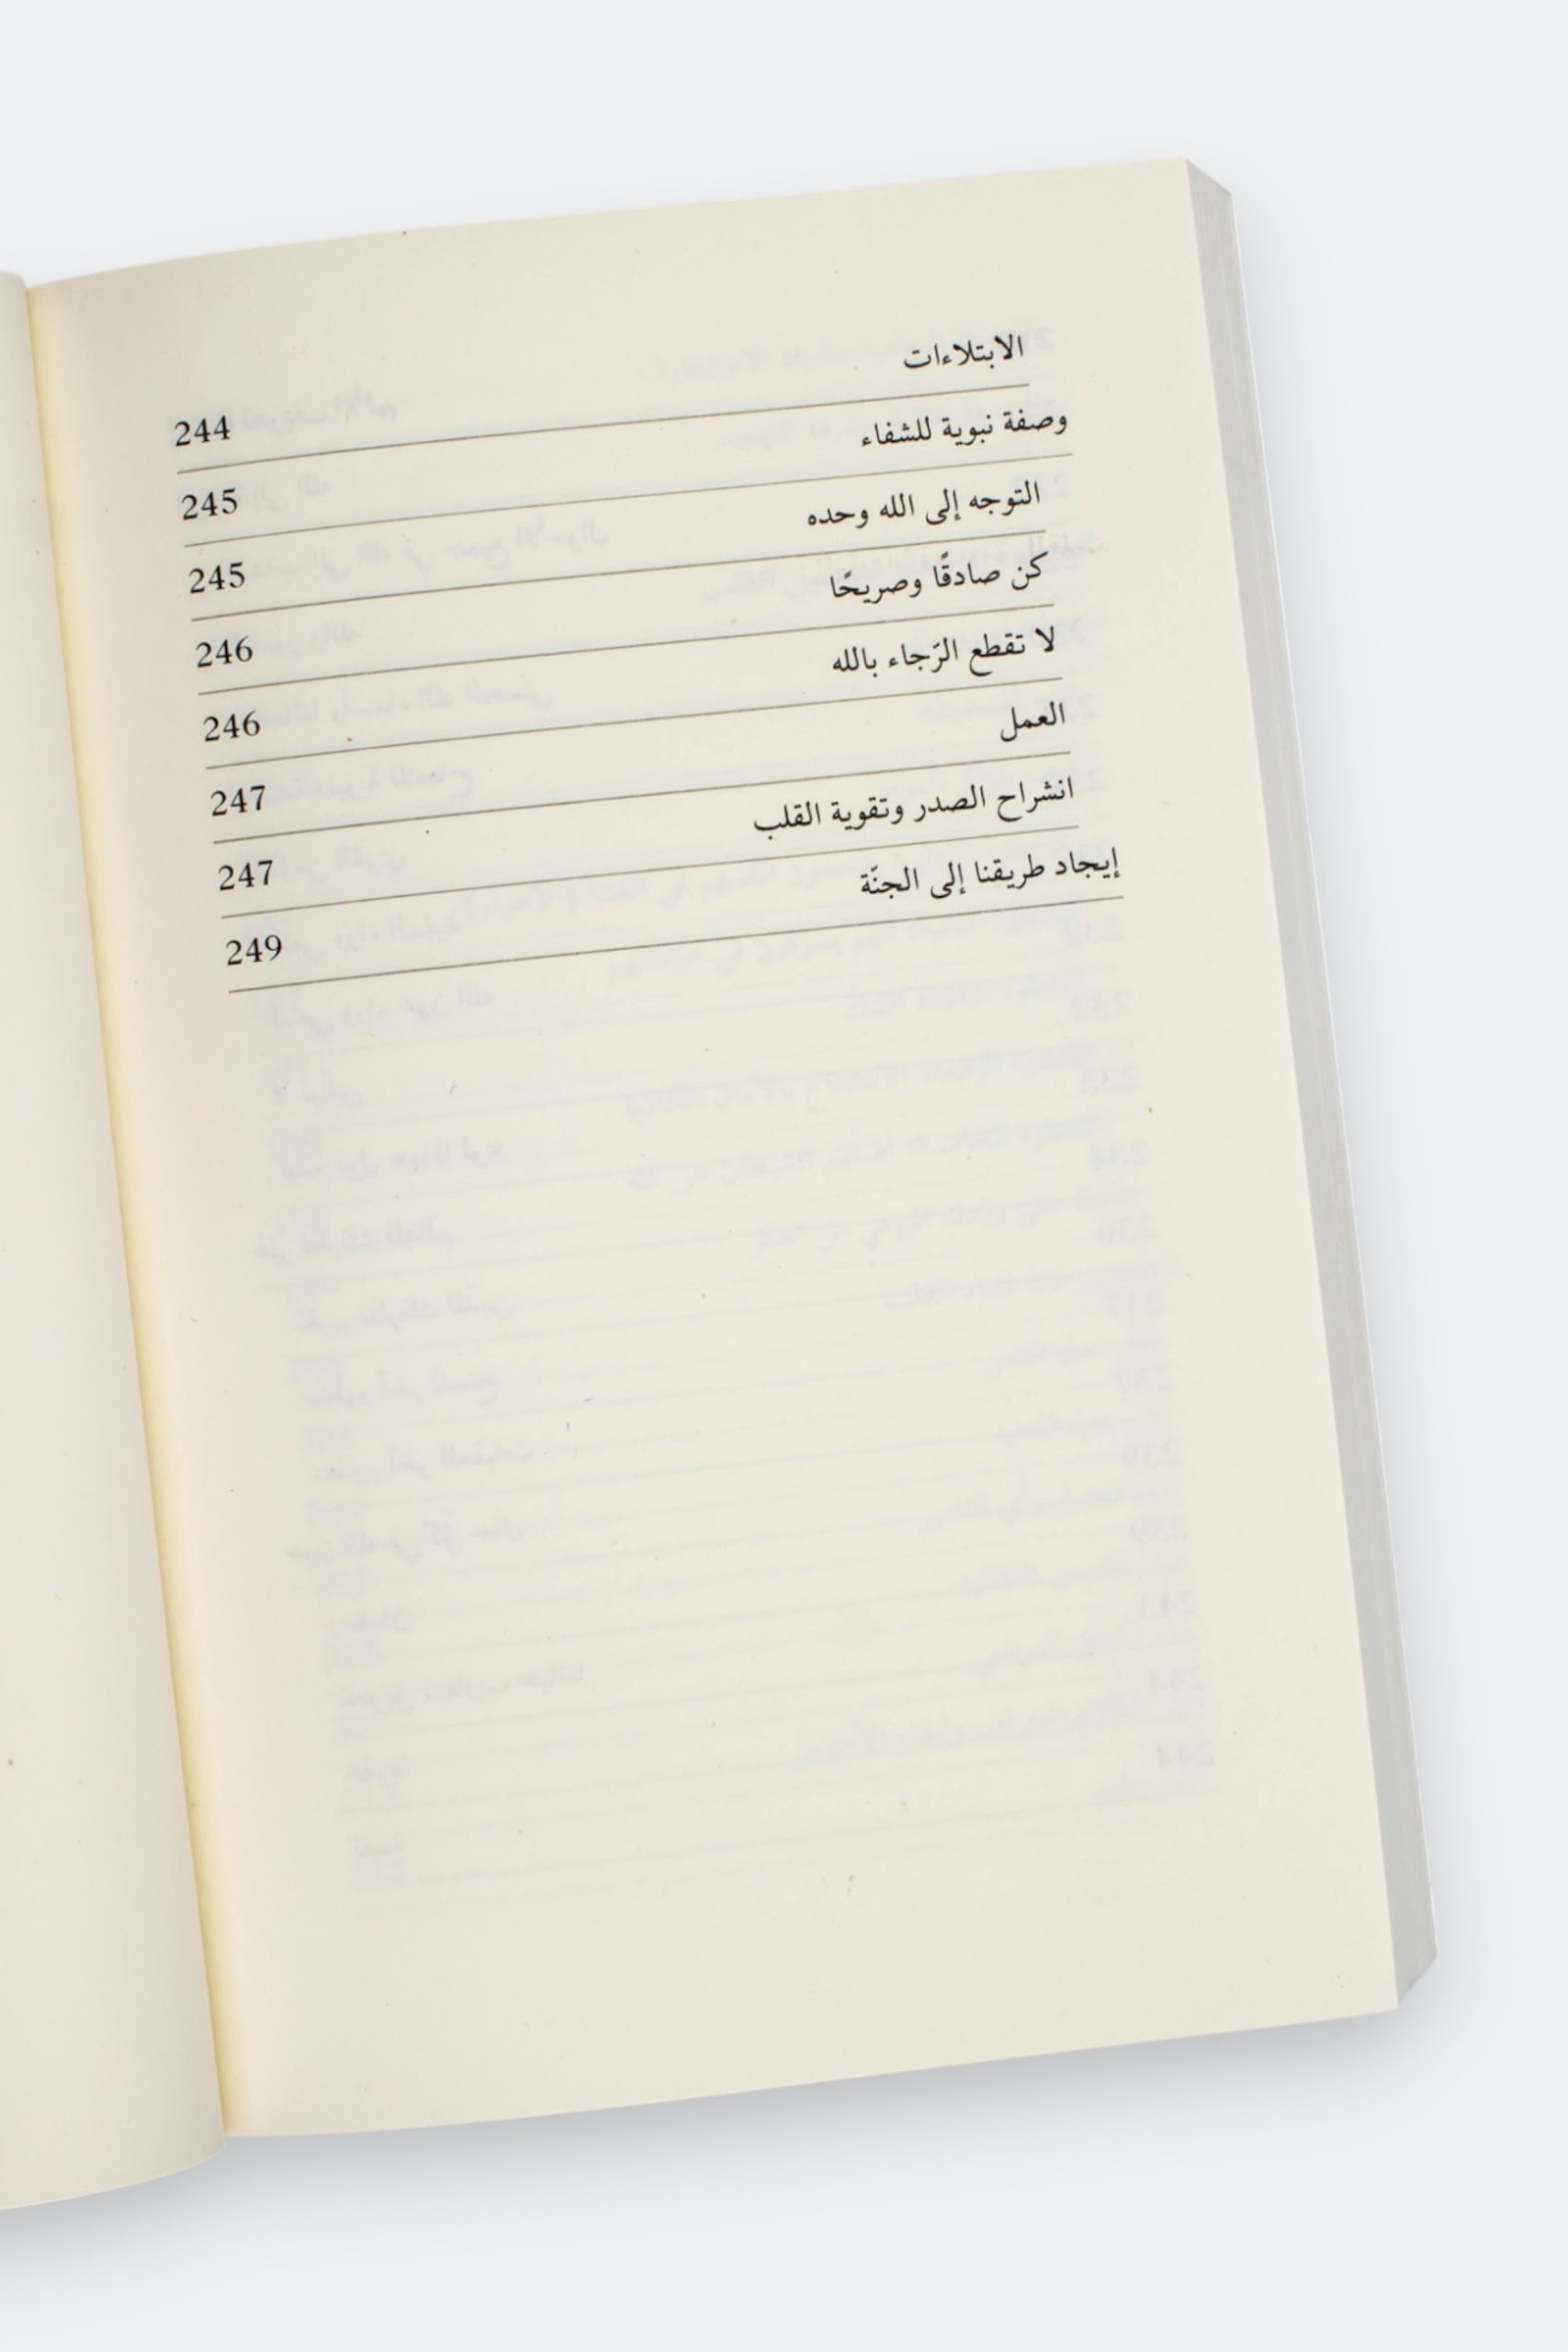 الابتلاءات 244
وصفة نبوية للشفاء 245
التوجه إلى الله وحده 245
كن صادقًا وصريحًا 246
لا تقطع الرّجاء بالله 246
العمل 247
انشراح الصدر وتقوية القلب 247
إيجاد طريقنا إلى الجنّة 249